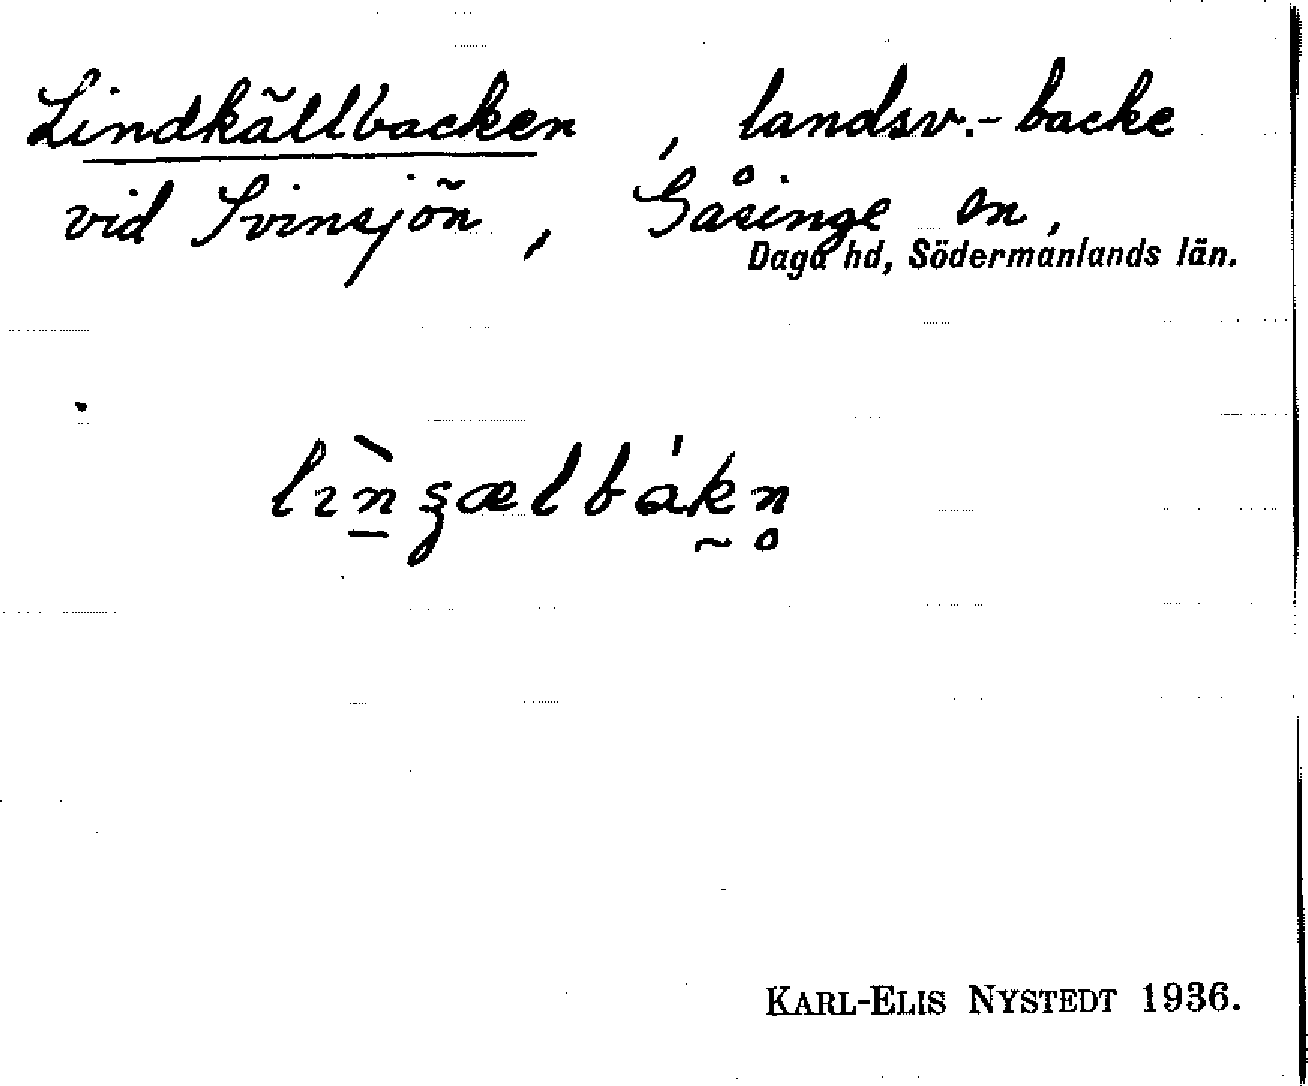 Lindkällbacken, landsv.-backe
vid Svinsjön, Gåsinge sn,
Daga hd, Södermanlands län.
lìn̠ʂælbák̰n̥
KARL-ELIS NYSTEDT 1936.